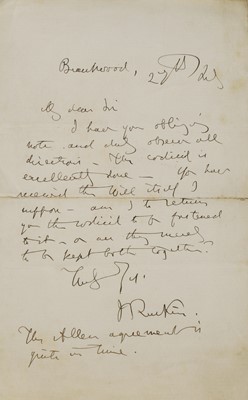 Brantwood,
27th July
My dear Sir
I have your obliging
note and duly observe all
directions - The codicil is
excellently done - You have
received the Will itself I
suppose - am I to return
you the codicil to be fastened
to it - or are they merely
to be kept both together.
Truly Yrs.
J Ruskin.
The Allen agreement is
quite in time.